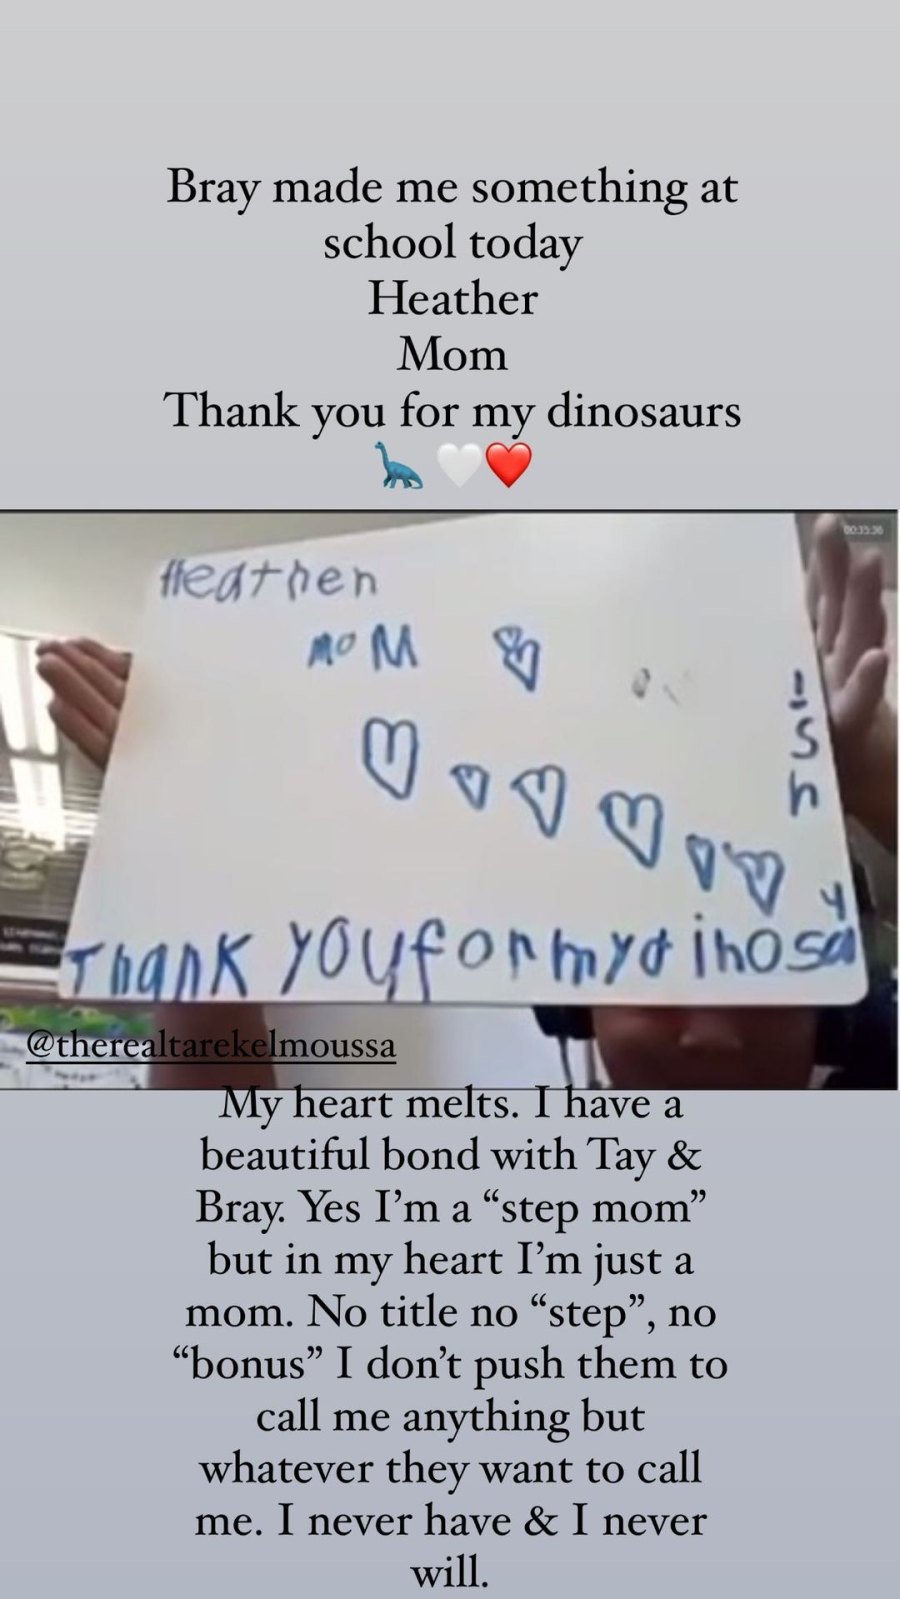 Bray made me something at
school today
Heather
Mom
Thank you for my dinosaurs
🦕 🤍❤️
00:35:36
Heather
MOM
Thank you for my dinosa
y
ish
@therealtarekelmoussa
My heart melts. I have a
beautiful bond with Tay &
Bray. Yes I’m a “step mom”
but in my heart I’m just a
mom. No title no “step”, no
“bonus” I don’t push them to
call me anything but
whatever they want to call
me. I never have & I never
will.